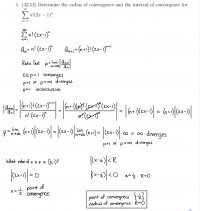 1. (32.12) Determine the radius of convergence and the interval of convergence for
∑ n!(2x − 1)ⁿ.
∑ n!(2x-1)ⁿ
aₙ = n! (2x-1)ⁿ   aₙ₊₁ = (n+1)! (2x-1)ⁿ⁺¹
Ratio Test ρ = lim |aₙ₊₁/aₙ|
0≤ρ<1 converges
ρ>1 or ρ=∞ diverges
ρ=1 inconclusive
|aₙ₊₁/aₙ| = |(n+1)!(2x-1)ⁿ⁺¹ / n!(2x-1)ⁿ| = |(n+1)n!(2x-1)ⁿ(2x-1) / n!(2x-1)ⁿ| = |(n+1)(2x-1)| = (n+1)|2x-1|
ρ = lim (n+1)|(2x-1)| = |(2x-1)| lim (n+1) = |(2x-1)| ∞ = ∞ diverges
ρ>1 or ρ=∞ diverges
What value of x is in
|(2x-1)| = 0
x = 1/2 point of
converge
|x-a|<R
|x-1/2|<0 a=1/2 R=0
point of convergence {1/2}
radius of convergence R=0